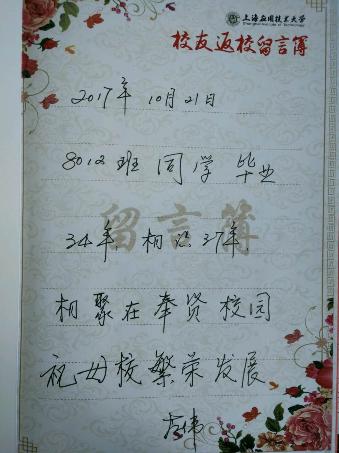 上海应用技术大学
Shanghai Institute of Technology
校友返校留言簿
2017年10月21日
8012班同学毕业
留言簿
34年,相识37年
相聚在奉贤校园
祝母校繁荣发展